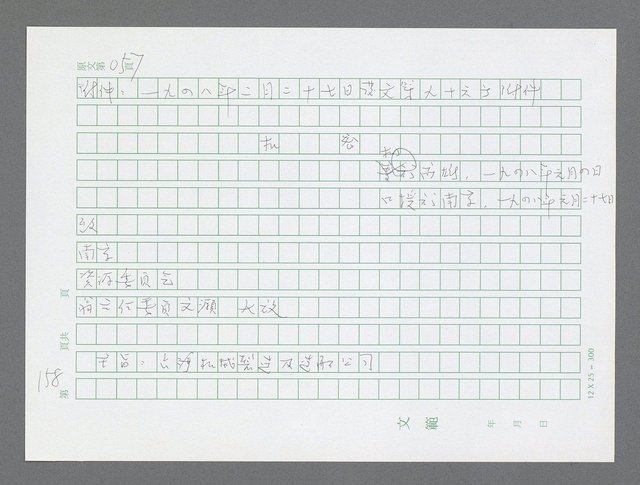 原文第057頁
附件：一九四八年二月二十七日發文第九十六號附件
机 密
一九四八年元月四日
口授於南京，一九四八年元月二十七日
致
南京
資源委員會
翁主任委員文灝 大改
主旨：台灣机械製造及造船公司
第158頁共 頁
12 X 25 = 300
文範 年 月 日